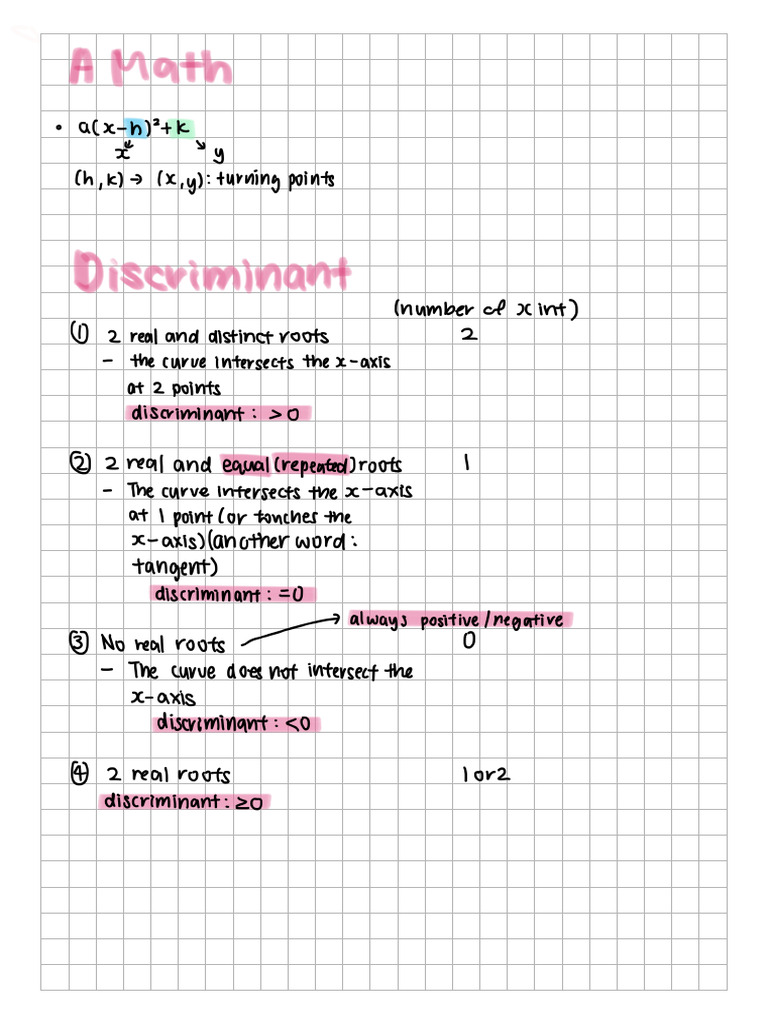 A Math
• a(x-h)²+k
x y
(h,k) → (x,y): turning points
Discriminant
(number of x int)
① 2 real and distinct roots 2
- the curve intersects the x-axis
at 2 points
discriminant: >0
② 2 real and equal (repeated) roots 1
- The curve intersects the x-axis
at 1 point (or touches the
x-axis) (another word:
tangent)
discriminant: =0
always positive/negative
③ No real roots → 0
- The curve does not intersect the
x-axis
discriminant: <0
④ 2 real roots 1 or 2
discriminant: ≥0